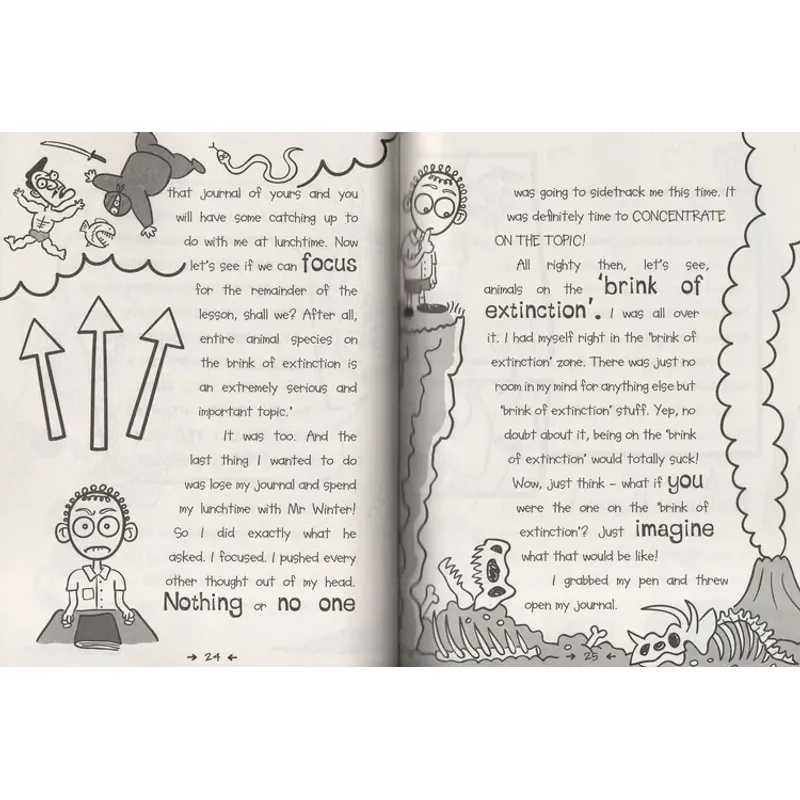 that journal of yours and you
will have some catching up to
do with me at lunchtime. Now
let's see if we can focus
for the remainder of the
lesson, shall we? After all,
entire animal species on
the brink of extinction is
an extremely serious and
important topic.'
It was too. And the
last thing I wanted to do
was lose my journal and spend
my lunchtime with Mr Winter!
So I did exactly what he
asked. I focused. I pushed every
other thought out of my head.
Nothing or no one
24
was going to sidetrack me this time. It
was definitely time to CONCENTRATE
ON THE TOPIC!
All righty then, let's see,
animals on the 'brink of
extinction'. I was all over
it. I had myself right in the 'brink of
extinction' zone. There was just no
room in my mind for anything else but
'brink of extinction' stuff. Yep, no
doubt about it, being on the 'brink
of extinction' would totally suck!
Wow, just think – what if you
were the one on the 'brink of
extinction'? Just imagine
what that would be like!
I grabbed my pen and threw
open my journal.
25